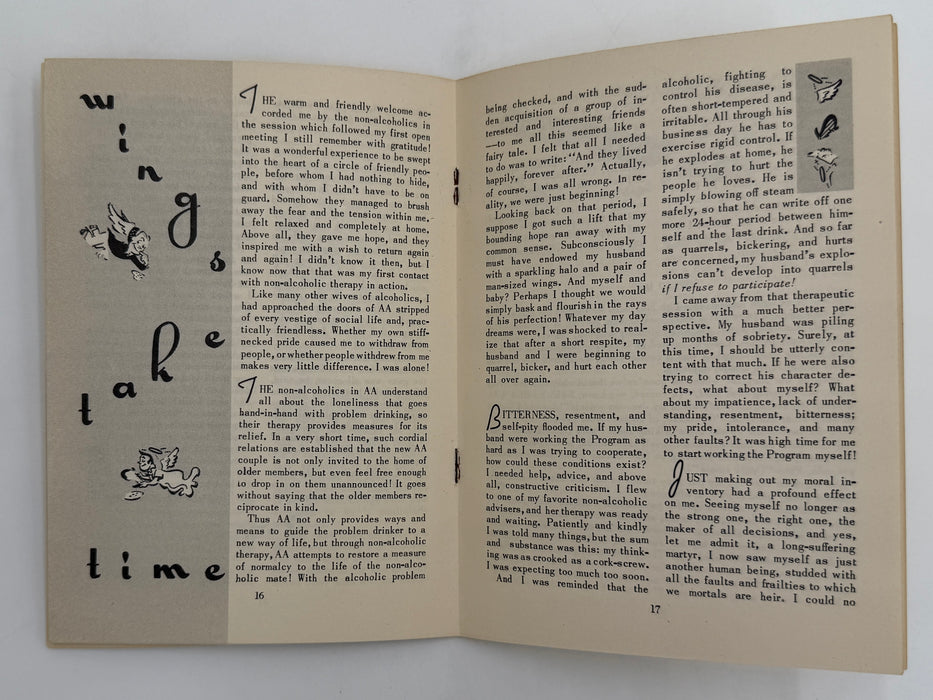 wings
take
time
THE warm and friendly welcome ac-
corded me by the non-alcoholics in
the session which followed my first open
meeting I still remember with gratitude!
It was a wonderful experience to be swept
into the heart of a circle of friendly peo-
ple, before whom I had nothing to hide,
and with whom I didn't have to be on
guard. Somehow they managed to brush
away the fear and the tension within me.
I felt relaxed and completely at home.
Above all, they gave me hope, and they
inspired me with a wish to return again
and again! I didn't know it then, but I
know now that that was my first contact
with non-alcoholic therapy in action.
Like many other wives of alcoholics, I
had approached the doors of AA stripped
of every vestige of social life and, prac-
tically friendless. Whether my own stiff-
necked pride caused me to withdraw from
people, or whether people withdrew from me
makes very little difference. I was alone!
THE non-alcoholics in AA understand
all about the loneliness that goes
hand-in-hand with problem drinking, so
their therapy provides measures for its
relief. In a very short time, such cordial
relations are established that the new AA
couple is not only invited to the home of
older members, but even feel free enough
to drop in on them unannounced! It goes
without saying that the older members re-
ciprocate in kind.
Thus AA not only provides ways and
means to guide the problem drinker to a
new way of life, but through non-alcoholic
therapy, AA attempts to restore a measure
of normalcy to the life of the non-alco-
holic mate! With the alcoholic problem
16
being checked, and with the sud-
den acquisition of a group of in-
terested and interesting friends
—to me all this seemed like a
fairy tale. I felt that all I needed
to do was to write: "And they lived
happily, forever after." Actually,
of course, I was all wrong. In re-
ality, we were just beginning!
Looking back on that period, I
suppose I got such a lift that my
bounding hope ran away with my
common sense. Subconsciously I
must have endowed my husband
with a sparkling halo and a pair of
man-sized wings. And myself and
baby? Perhaps I thought we would
simply bask and flourish in the rays
of his perfection! Whatever my day
dreams were, I was shocked to real-
ize that after a short respite, my
husband and I were beginning to
quarrel, bicker, and hurt each other
all over again.
BITTERNESS, resentment, and
self-pity flooded me. If my hus-
band were working the Program as
hard as I was trying to cooperate,
how could these conditions exist?
I needed help, advice, and above
all, constructive criticism. I flew
to one of my favorite non-alcoholic
advisers, and her therapy was ready
and waiting. Patiently and kindly
I was told many things, but the sum
and substance was this: my think-
ing was as crooked as a cork-screw.
I was expecting too much too soon.
And I was reminded that the
alcoholic, fighting to
control his disease, is
often short-tempered and
irritable. All through his
business day he has to
exercise rigid control. If
he explodes at home, he
isn't trying to hurt the
people he loves. He is
simply blowing off steam
safely, so that he can write off one
more 24-hour period between him-
self and the last drink. And so far
as quarrels, bickering, and hurts
are concerned, my husband's explo-
sions can't develop into quarrels
if I refuse to participate!
I came away from that therapeutic
session with a much better per-
spective. My husband was piling
up months of sobriety. Surely, at
this time, I should be utterly con-
tent with that much. If he were also
trying to correct his character de-
fects, what about myself? What
about my impatience, lack of under-
standing, resentment, bitterness;
my pride, intolerance, and many
other faults? It was high time for me
to start working the Program myself!
JUST making out my moral in-
ventory had a profound effect
on me. Seeing myself no longer as
the strong one, the right one, the
maker of all decisions, and yes,
let me admit it, a long-suffering
martyr, I now saw myself as just
another human being, studded with
all the faults and frailties to which
we mortals are heir. I could no
17